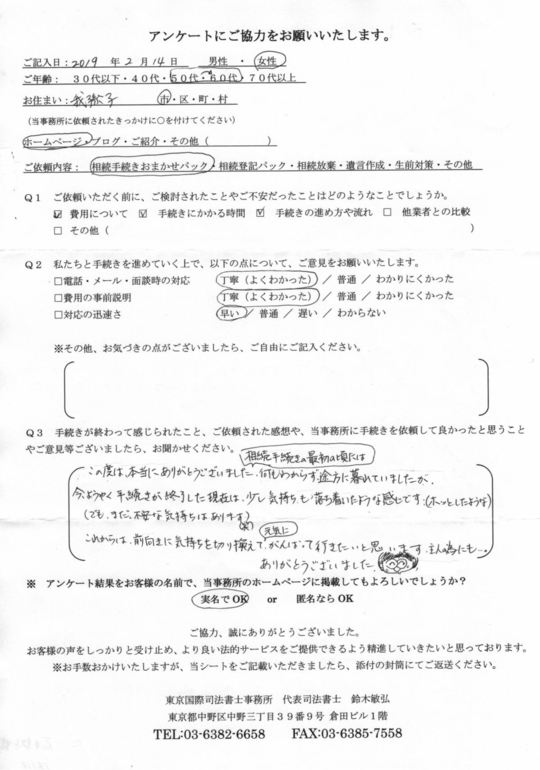 アンケートにご協力をお願いいたします。
ご記入日：2019 年 2 月 14 日 男性 ・ 女性
ご年齢： 30代以下・40代・50代・60代・70代以上
お住まい：我孫子 市・区・町・村
（当事務所に依頼されたきっかけに○を付けてください）
ホームページ・ブログ・ご紹介・その他（ ）
ご依頼内容： 相続手続きおまかせパック・相続登記パック・相続放棄・遺言作成・生前対策・その他
Q1 ご依頼いただく前に、ご検討されたことやご不安だったことはどのようなことでしょうか。
☑ 費用について ☑ 手続きにかかる時間 ☑ 手続きの進め方や流れ □ 他業者との比較
□ その他（ ）
Q2 私たちと手続きを進めていく上で、以下の点について、ご意見をお願いいたします。
□電話・メール・面談時の対応 丁寧（よくわかった）／ 普通 ／ わかりにくかった
□費用の事前説明 丁寧（よくわかった）／ 普通 ／ わかりにくかった
□対応の迅速さ 早い ／ 普通 ／ 遅い ／ わからない
※その他、お気づきの点がございましたら、ご自由にご記入ください。
Q3 手続きが終わって感じられたこと、ご依頼された感想や、当事務所に手続きを依頼して良かったと思うこと
やご意見等ございましたら、お聞かせください。
相続手続きの最初の頃には
この度は、本当にありがとうございました。何もわからず途方に暮れていましたが、
今ようやく手続きが終了した現在は、少し気持ちも落ち着いたような感じです。（ホッとしたような）
（でも、まだ、不安な気持ちはあります）
元気に
これからは、前向きに気持ちを切り換えて、がんばって行きたいと思います。主人の為にも…
ありがとうございました。
※ アンケート結果をお客様の名前で、当事務所のホームページに掲載してもよろしいでしょうか？
実名でOK or 匿名ならOK
ご協力、誠にありがとうございました。
お客様の声をしっかりと受け止め、より良い法的サービスをご提供できるよう精進していきたいと思っております。
※お手数おかけいたしますが、当シートをご記載いただきましたら、添付の封筒にてご返送ください。
東京国際司法書士事務所 代表司法書士 鈴木敏弘
東京都中野区中野三丁目39番9号 倉田ビル1階
TEL:03-6382-6658 FAX:03-6385-7558